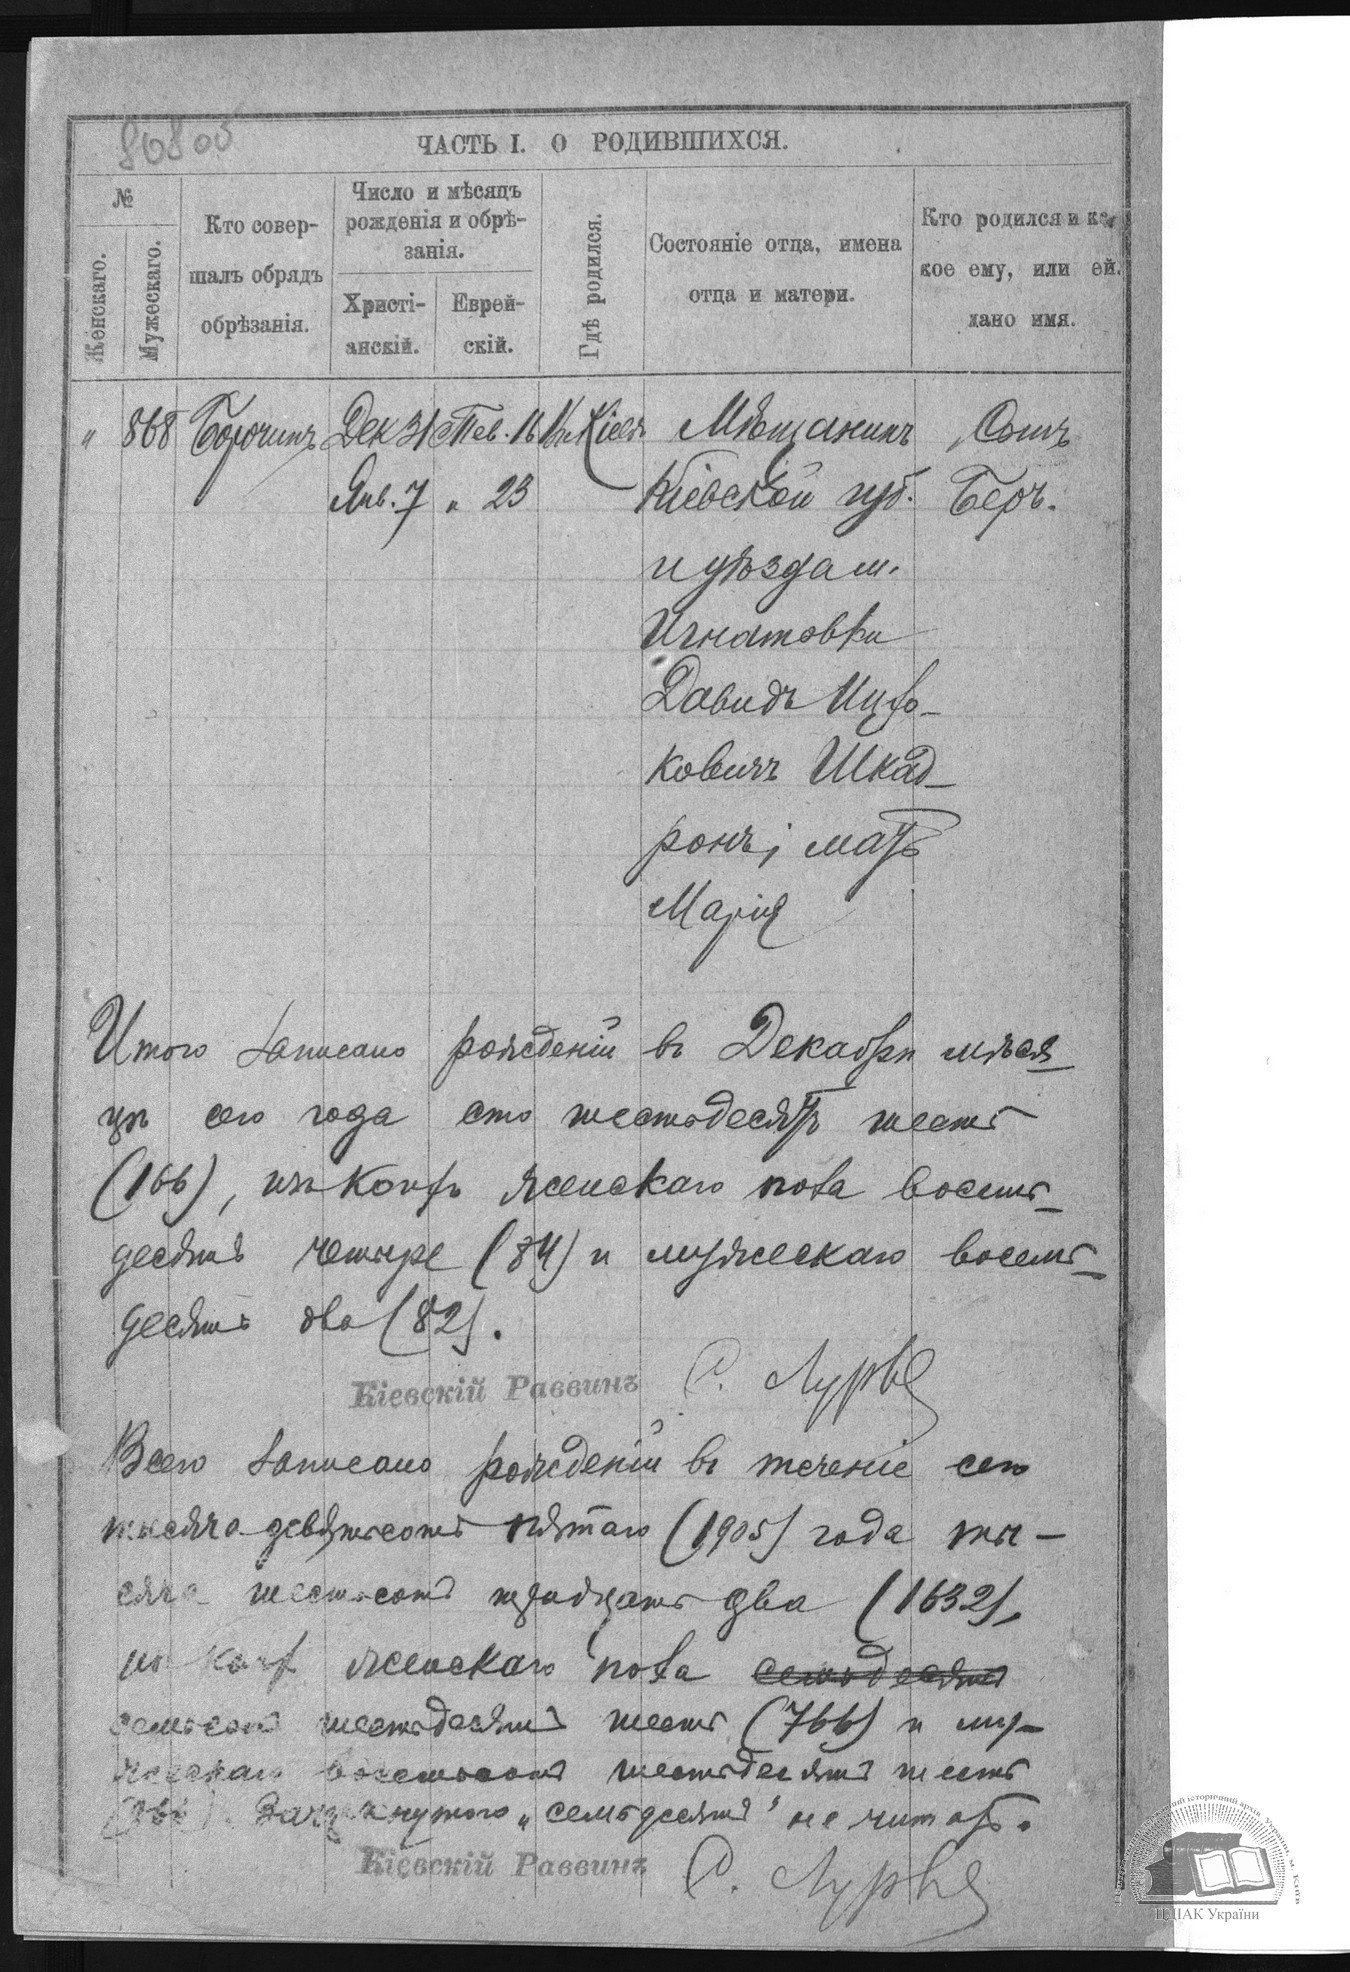 ЧАСТЬ I. О РОДИВШИХСЯ.
№
Женскаго.
Мужескаго.
Кто совер-
шалъ обрядъ
обрѣзанія.
Число и мѣсяцъ
рожденія и обрѣ-
занія.
Христі-
анскій.
Еврей-
скій.
Гдѣ родился.
Состояніе отца, имена
отца и матери.
Кто родился и ка-
кое ему, или ей
дано имя.
" 868 Дек 31 Тев. 16 Кіевѣ Мѣщанинъ Сынъ
Янв. 7 " 23 Кіевской губ. Беръ.
и уѣзда м.
Игнатовки
Давидъ Ицко-
ковичъ Шкад-
ронъ, мать
Марія
Итого записано рожденій въ Декабрѣ мѣся-
цѣ сего года сто шестьдесятъ шесть
(166), изъ коихъ женскаго пола восемь-
десятъ четыре (84) и мужескаго восемь-
десятъ два (82).
Кіевскій Раввинъ С. Лурье
Всего записано рожденій въ теченіе сего
тысяча девятьсотъ пятаго (1905) года ты-
сяча шестьсотъ тридцать два (1632),
изъ коихъ женскаго пола семьдесятъ
семьсотъ шестьдесятъ шесть (766) и му-
жескаго восемьсотъ шестьдесятъ шесть
(866). Зачеркнутого „семьдесятъ" не читать.
Кіевскій Раввинъ С. Лурье
ЦДІАК України